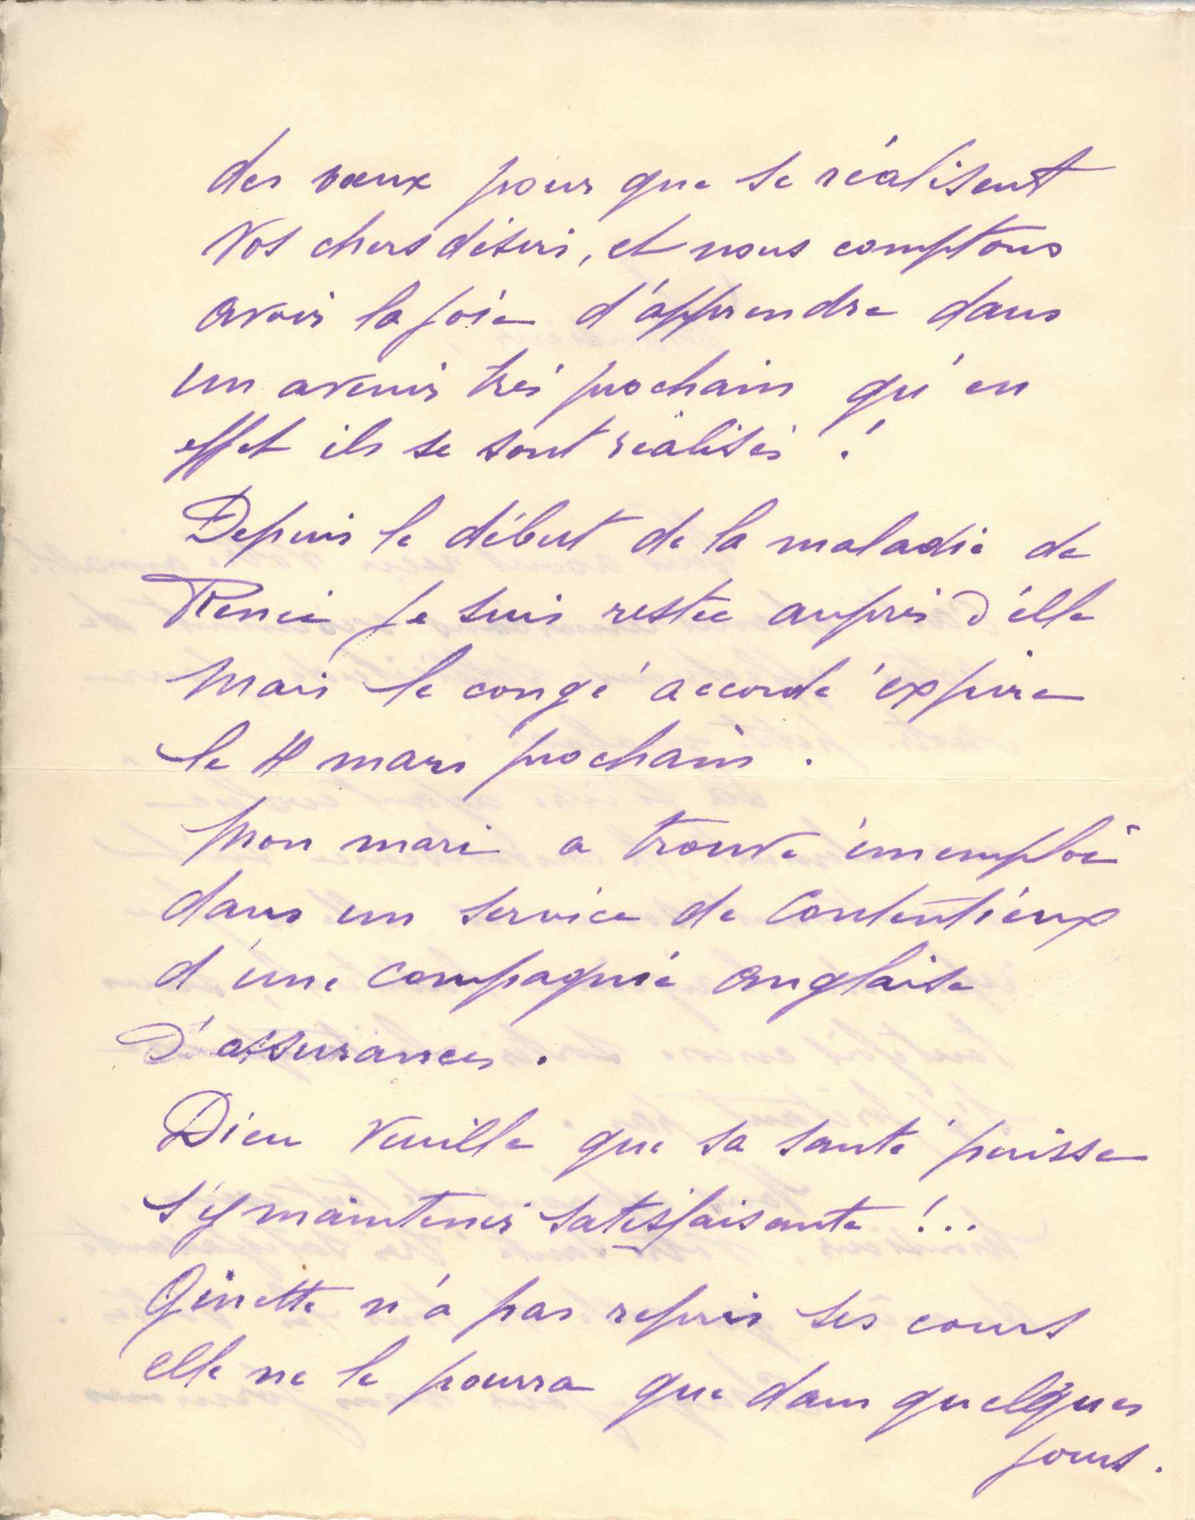 des vœux pour que se réalisent
vos chers désirs, et nous comptons
avoir la joie d'apprendre dans
un avenir très prochain qu'en
effet ils se sont réalisés !
Depuis le début de la maladie de
Renée je suis restée auprès d'elle
mais le congé accordé expire
le mars prochain.
Mon mari a trouvé un emploi
dans un service de Contentieux
d'une Compagnie anglaise
d'assurances.
Dieu veuille que sa santé puisse
s'y maintenir satisfaisante !..
Ginette n'a pas repris ses cours
elle ne le pourra que dans quelques
jours.